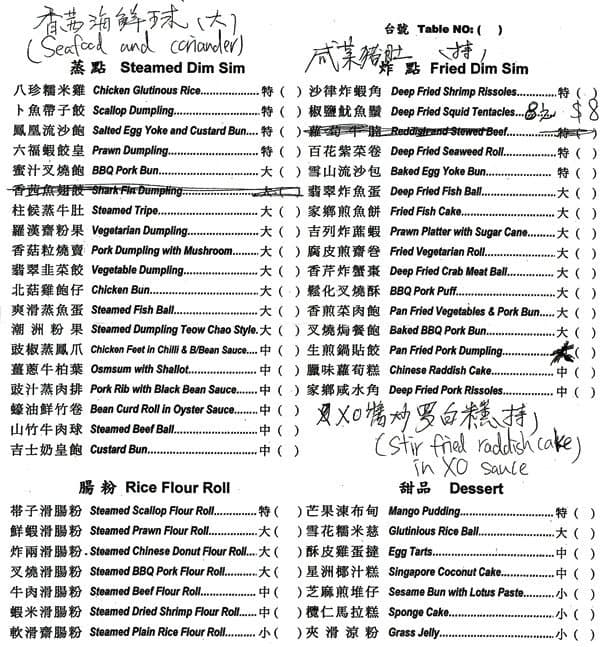 香茜海鮮球(大)
(Seafood and coriander)
蒸 點 Steamed Dim Sim
八珍糯米雞 Chicken Glutinous Rice 特 ( )
卜魚帶子餃 Scallop Dumpling 特 ( )
鳳凰流沙飽 Salted Egg Yoke and Custard Bun 特 ( )
六福蝦餃皇 Prawn Dumpling 特 ( )
蜜汁叉燒飽 BBQ Pork Bun 大 ( )
香茜魚翅餃 Shark Fin Dumpling 大 ( )
柱候蒸牛肚 Steamed Tripe 大 ( )
羅漢齋粉果 Vegetarian Dumpling 大 ( )
香菇粒燒賣 Pork Dumpling with Mushroom 大 ( )
翡翠韭菜餃 Vegetable Dumpling 大 ( )
北菇雞飽仔 Chicken Bun 大 ( )
爽滑蒸魚蛋 Steamed Fish Ball 大 ( )
潮洲粉果 Steamed Dumpling Teow Chao Style 大 ( )
豉椒蒸鳳爪 Chicken Feet in Chilli & B/Bean Sauce 中 ( )
薑蔥牛柏葉 Osmsum with Shallot 中 ( )
豉汁蒸肉排 Pork Rib with Black Bean Sauce 中 ( )
蠔油鮮竹卷 Bean Curd Roll in Oyster Sauce 中 ( )
山竹牛肉球 Steamed Beef Ball 中 ( )
吉士奶皇飽 Custard Bun 中 ( )
腸 粉 Rice Flour Roll
帶子滑腸粉 Steamed Scallop Flour Roll 特 ( )
鮮蝦滑腸粉 Steamed Prawn Flour Roll 大 ( )
炸兩滑腸粉 Steamed Chinese Donut Flour Roll 大 ( )
叉燒滑腸粉 Steamed BBQ Pork Flour Roll 大 ( )
牛肉滑腸粉 Steamed Beef Flour Roll 中 ( )
蝦米滑腸粉 Steamed Dried Shrimp Flour Roll 中 ( )
軟滑齋腸粉 Steamed Plain Rice Flour Roll 小 ( )
台號 Table NO: ( )
咸菜豬肚 (特)
炸 點 Fried Dim Sim
沙律炸蝦角 Deep Fried Shrimp Rissoles 特 ( )
椒鹽魷魚鬚 Deep Fried Squid Tentacles $8
蘿蔔牛腩 Reddish and Stewed Beef 特 ( )
百花紫菜卷 Deep Fried Seaweed Roll 特 ( )
雪山流沙包 Baked Egg Yoke Bun 特 ( )
翡翠炸魚蛋 Deep Fried Fish Ball 大 ( )
家鄉煎魚餅 Fried Fish Cake 大 ( )
吉列炸蔗蝦 Prawn Platter with Sugar Cane 大 ( )
腐皮煎齋卷 Fried Vegetarian Roll 大 ( )
香芹炸蟹棗 Deep Fried Crab Meat Ball 大 ( )
鬆化叉燒酥 BBQ Pork Puff 大 ( )
香煎菜肉飽 Pan Fried Vegetables & Pork Bun 大 ( )
叉燒焗餐飽 Baked BBQ Pork Bun 大 ( )
生煎鍋貼餃 Pan Fried Pork Dumpling ( )
臘味蘿蔔糕 Chinese Raddish Cake 中 ( )
家鄉咸水角 Deep Fried Pork Rissoles 中 ( )
XO醬炒罗白糕(特)
(Stir fried raddish cake)
in XO sauce
甜 品 Dessert
芒果凍布甸 Mango Pudding 特 ( )
雪花糯米慈 Glutinious Rice Ball 大 ( )
酥皮雞蛋撻 Egg Tarts 中 ( )
星洲椰汁糕 Singapore Coconut Cake 中 ( )
芝麻煎堆仔 Sesame Bun with Lotus Paste 小 ( )
欖仁馬拉糕 Sponge Cake 小 ( )
夾滑涼粉 Grass Jelly 小 ( )